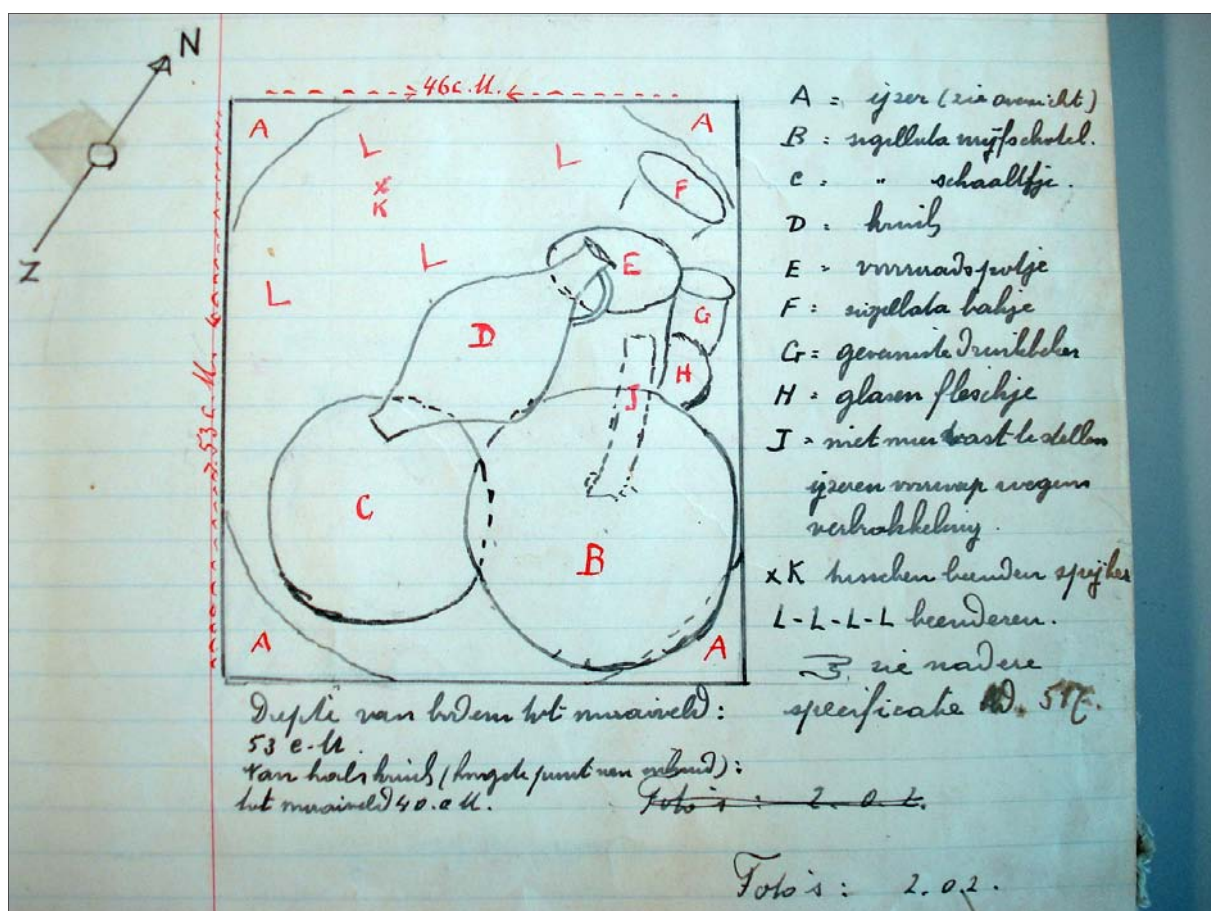 N
Z
46 c.M.
53 c.M.
A
A
L
L
x
K
F
L
E
L
G
D
H
J
C
B
A
A
A = ijzer (zie overzicht)
B = sigillata wrijfschotel.
C = " schaaltje.
D = kruik
E = voorraadspotje
F = sigillata bakje
G = geverniste drinkbeker
H = glazen fleschje
J = niet meer vast te stellen
ijzeren voorwerp wegens
verbrokkeling.
x K tusschen beenderen spijker
L-L-L-L beenderen.
zie nadere
specificatie
Diepte van bodem tot maaiveld:
53 c.M.
Van hals kruik (hoogste punt van):
tot maaiveld 40. c.M.
Foto's: 2. 0. 2.
Foto's: 2. 0. 2.